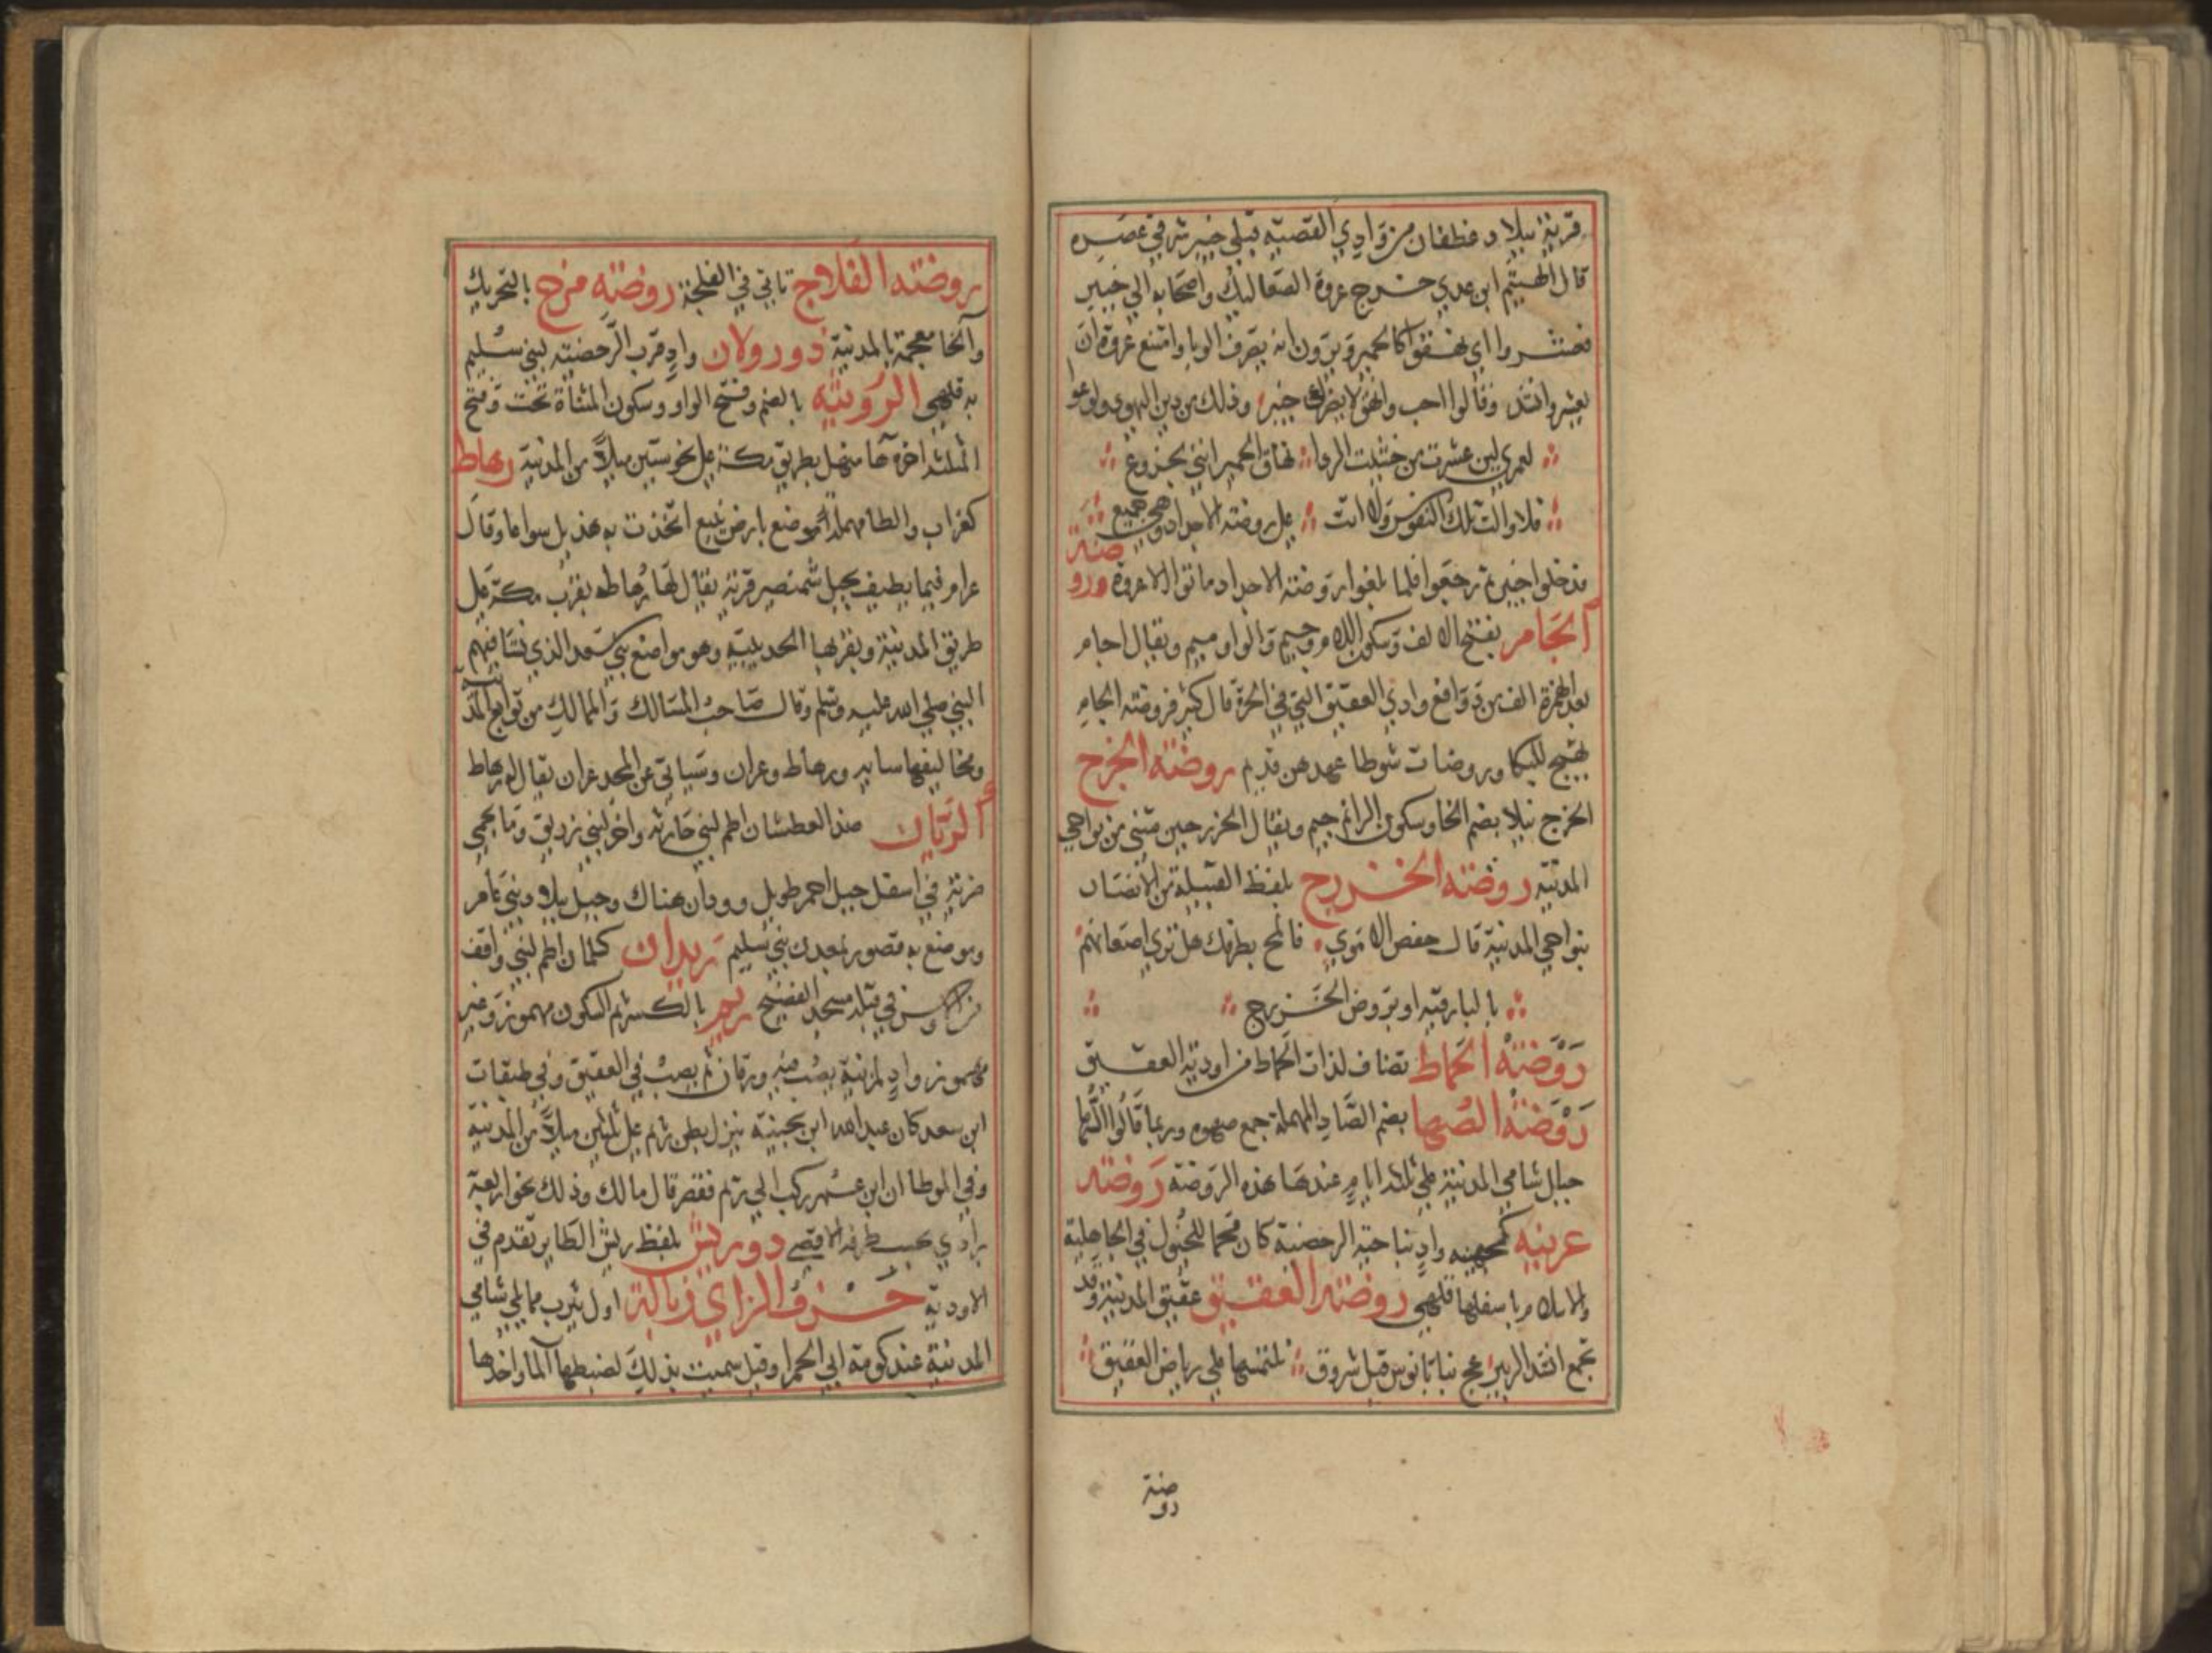 قرية ببلاد غطفان من وادي القصيبة قبلي خيبر شرقي عصره
قال الهيثم ابن عدي خرج عروة الصعاليك واصحابه الى خيبر
فعشروا اي نهقوا كالحمير ويرون انه يصرف الوبا وامتنع عروة ان
يعشر وانشد وقالوا احب وانهق لا يضرك خيبر وذلك من دين اليهود ولوع
لعمري لين عشرت من خشية الردا نهاق الحمير انني لجزوع
فلا والت تلك النفوس ولا اتت على روضة الاجداد وهي جميع
فدخلوا خيبر ثم رجعوا فلما بلغوا روضة الاجداد ماتوا الا عروة وروضة
الجام بفتح الالف وسكون اللام وجيم والواو ميم ويقال اجام
بعد الهمزة الف من دوافع وادي العقيق التي في الحرة قال كثير فروضة الجام
تهيج للبكا وروضات شوطا عهدهن قديم روضة الخرج
الخرج ببلا بضم الخا وسكون الرا ثم جيم ويقال الخرجين مثنى من نواحي
المدينة روضة الخزرج بلفظ القبيلة من الانصار
بنواحي المدينة قال حفص الاموي فالمح بطرفك هل ترى اضعانهم
بالبارقية او بروض الخزرج
روضة الحماط تضاف لذات الحماط من اودية العقيق
روضة الصها بضم الصاد المهملة جمع صهوه وربما قالوا الصها
جبال شامي المدينة على ثلثة ايام عندها هذه الروضة روضة
عرينه كجهينه واد بناحية الرحضية كان محما للخيول في الجاهلية
والاسلام باسفلها قلهى روضة العقيق عقيق المدينة وقد
تجمع انشد الزبير عج بنا يا نوس قبل شروق نلتمسها على رياض العقيق
روضة
روضة الفلاج تاتي في الفلجة روضة مرخ بالتحريك
والخا معجمة بالمدينة ذو رولان واد قرب الرحضية لبني سليم
به قلهى الرويثه بالضم وفتح الواو وسكون المثناة تحت وفتح
المثلثة اخره ها منهل بطريق مكة على نحو ستين ميلا من المدينة رهاط
كغراب والطا مهملة موضع بارض ينبع اتخذت به هذيل سواعا وقال
عرام فيما يطيف بجبل شمنصير قرية يقال لها رهاط بقرب مكة على
طريق المدينة وبقربها الحديبية وهو مواضع بني سعد الذي نشا فيهم
النبي صلى الله عليه وسلم وقال صاحب المسالك والممالك من توابع المدينة
ومخاليفها سايه ورهاط وعران وسياتي عن المجد عران يقال له رهاط
الريان ضد العطشان اطم لبني حارثه واخر لبني زريق وما بحمى
ضرية في اسفل جبل احمر طويل وودان هناك وجبل ببلاد بني عامر
وموضع به قصور بمعدن بني سليم ريدان كلمان اطم لبني واقف
من الاوس في قبلة مسجد الفضيخ ريم بالكسر ثم السكون مهموز وغير
مهموز واد لمزينة يصب فيه ورقان ثم يصب في العقيق وفي طبقات
ابن سعد كان عبد الله ابن بحينة ينزل بطن ريم على ثلثين ميلا من المدينة
وفي الموطا ان ابن عمر ركب الى ريم فقصر قال مالك وذلك نحو اربعة
برد اي بحسب طرفه الاقصى ذو ريش بلفظ ريش الطاير تقدم في
الاودية حرف الزاي زبالة اول يثرب مما يلي شامي
المدينة عند كومة ابي الحمرا وقيل سميت بذلك لضبطها الما واخذها